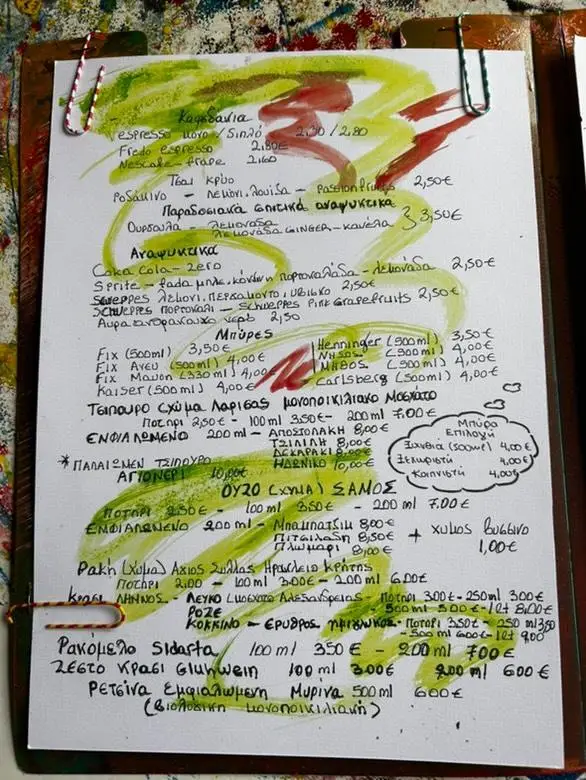 Καφεδάκια
espresso μονο / διπλό 2,30 / 2,80
Fredo espresso 2,80€
Nescafe - frape 2,60
Τσαι κρύο
Ροδάκινο - λεμόνι, λουίζα - Passion fruits 2,50€
Παραδοσιακά σπιτικά αναψυκτικά
Ουρσουλα - λεμονάδα
λεμονάδα GINGER - κανέλα } 3,50€
Αναψυκτικά
Coka Cola - zero
Sprite - fada μπλε, κόκκινη πορτοκαλάδα - λεμονάδα 2,50€
Schweppes λεμόνι, περγαμόντο, υβισκο 2,50€
Schweppes πορτοκάλι - Schweppes Pink Grapefruits 2,50€
Αυρα ανθρακουχο νερό 2,50
Μπύρες
Fix (500ml) 3,50€
Fix Ανευ (500ml) 4,00€
Fix Μαυρη (330ml) 4,00€
Kaiser (500ml) 4,00€
Henninger (500ml) 3,50€
Νησος (500ml) 4,00€
Μηθος (500ml) 4,00€
Carlsberg (500ml) 4,00€
Τσιπουρο χύμα Λαρισας μονοποικιλιακο Μοσχάτο
Ποτήρι 2,50€ - 100ml 3,50€ - 200ml 7,00€
ΕΝΦΙΑΛΩΜΕΝΟ 200ml - ΑΠΟΣΤΟΛΑΚΗ 8,00€
ΤΣΙΛΙΛΗ 8,00€
ΔΕΚΑΡΑΚΙ 8,00€
ΗΔΩΝΙΚΟ 10,00€
* ΠΑΛΑΙΩΜΕΝ ΤΣΙΠΟΥΡΟ
10,00€
Μπύρα
Επιλογή
(500ml) 4,00€
Ξεχωριστή 4,00€
Καπνιστή 4,00€
ΟΥΖΟ (ΧΥΜΑ) ΣΑΜΟΣ
ΠΟΤΗΡΙ 2,50€ - 100ml 3,50€ - 200ml 7,00€
ΕΜΦΙΑΛΩΜΕΝΟ 200ml - Μπαμπατζιμ 8,00€
Πιτσιλαδη 8,50€
Πλωμαρι 8,00€
+ χυμος βυσσινο
1,00€
Ρακη (χυμα) Αγιος Συλλας Ηρακλειο Κρήτης
ΠΟΤΗΡΙ 2,00 - 100ml 3,00€ - 200ml 6,00€
Κρασι ΛΗΜΝΟΣ - ΛΕΥΚΟ (μοσχάτο Αλεξανδρειας) - Ποτήρι 3,00€ - 250ml 3,00€
ΡΟΖΕ - 500ml 5,00€ - 1lt 8,00€
ΚΟΚΚΙΝΟ - ΕΡΥΘΡΟΣ ημιγλυκος - ΠΟΤΗΡΙ 3,50€ - 250ml 3,50
- 500ml 6,00€ - 1lt 9,00
Ρακόμελο Sidarta 100ml 3,50€ - 200ml 7,00€
ΖΕΣΤΟ ΚΡΑΣΙ Gluhwein 100ml 3,00€ 200ml 6,00€
ΡΕΤΣΙΝΑ Εμφιαλωμενη Μυρίνα 500ml 6,00€
(Βιολογικη μονοποικιλιακή)